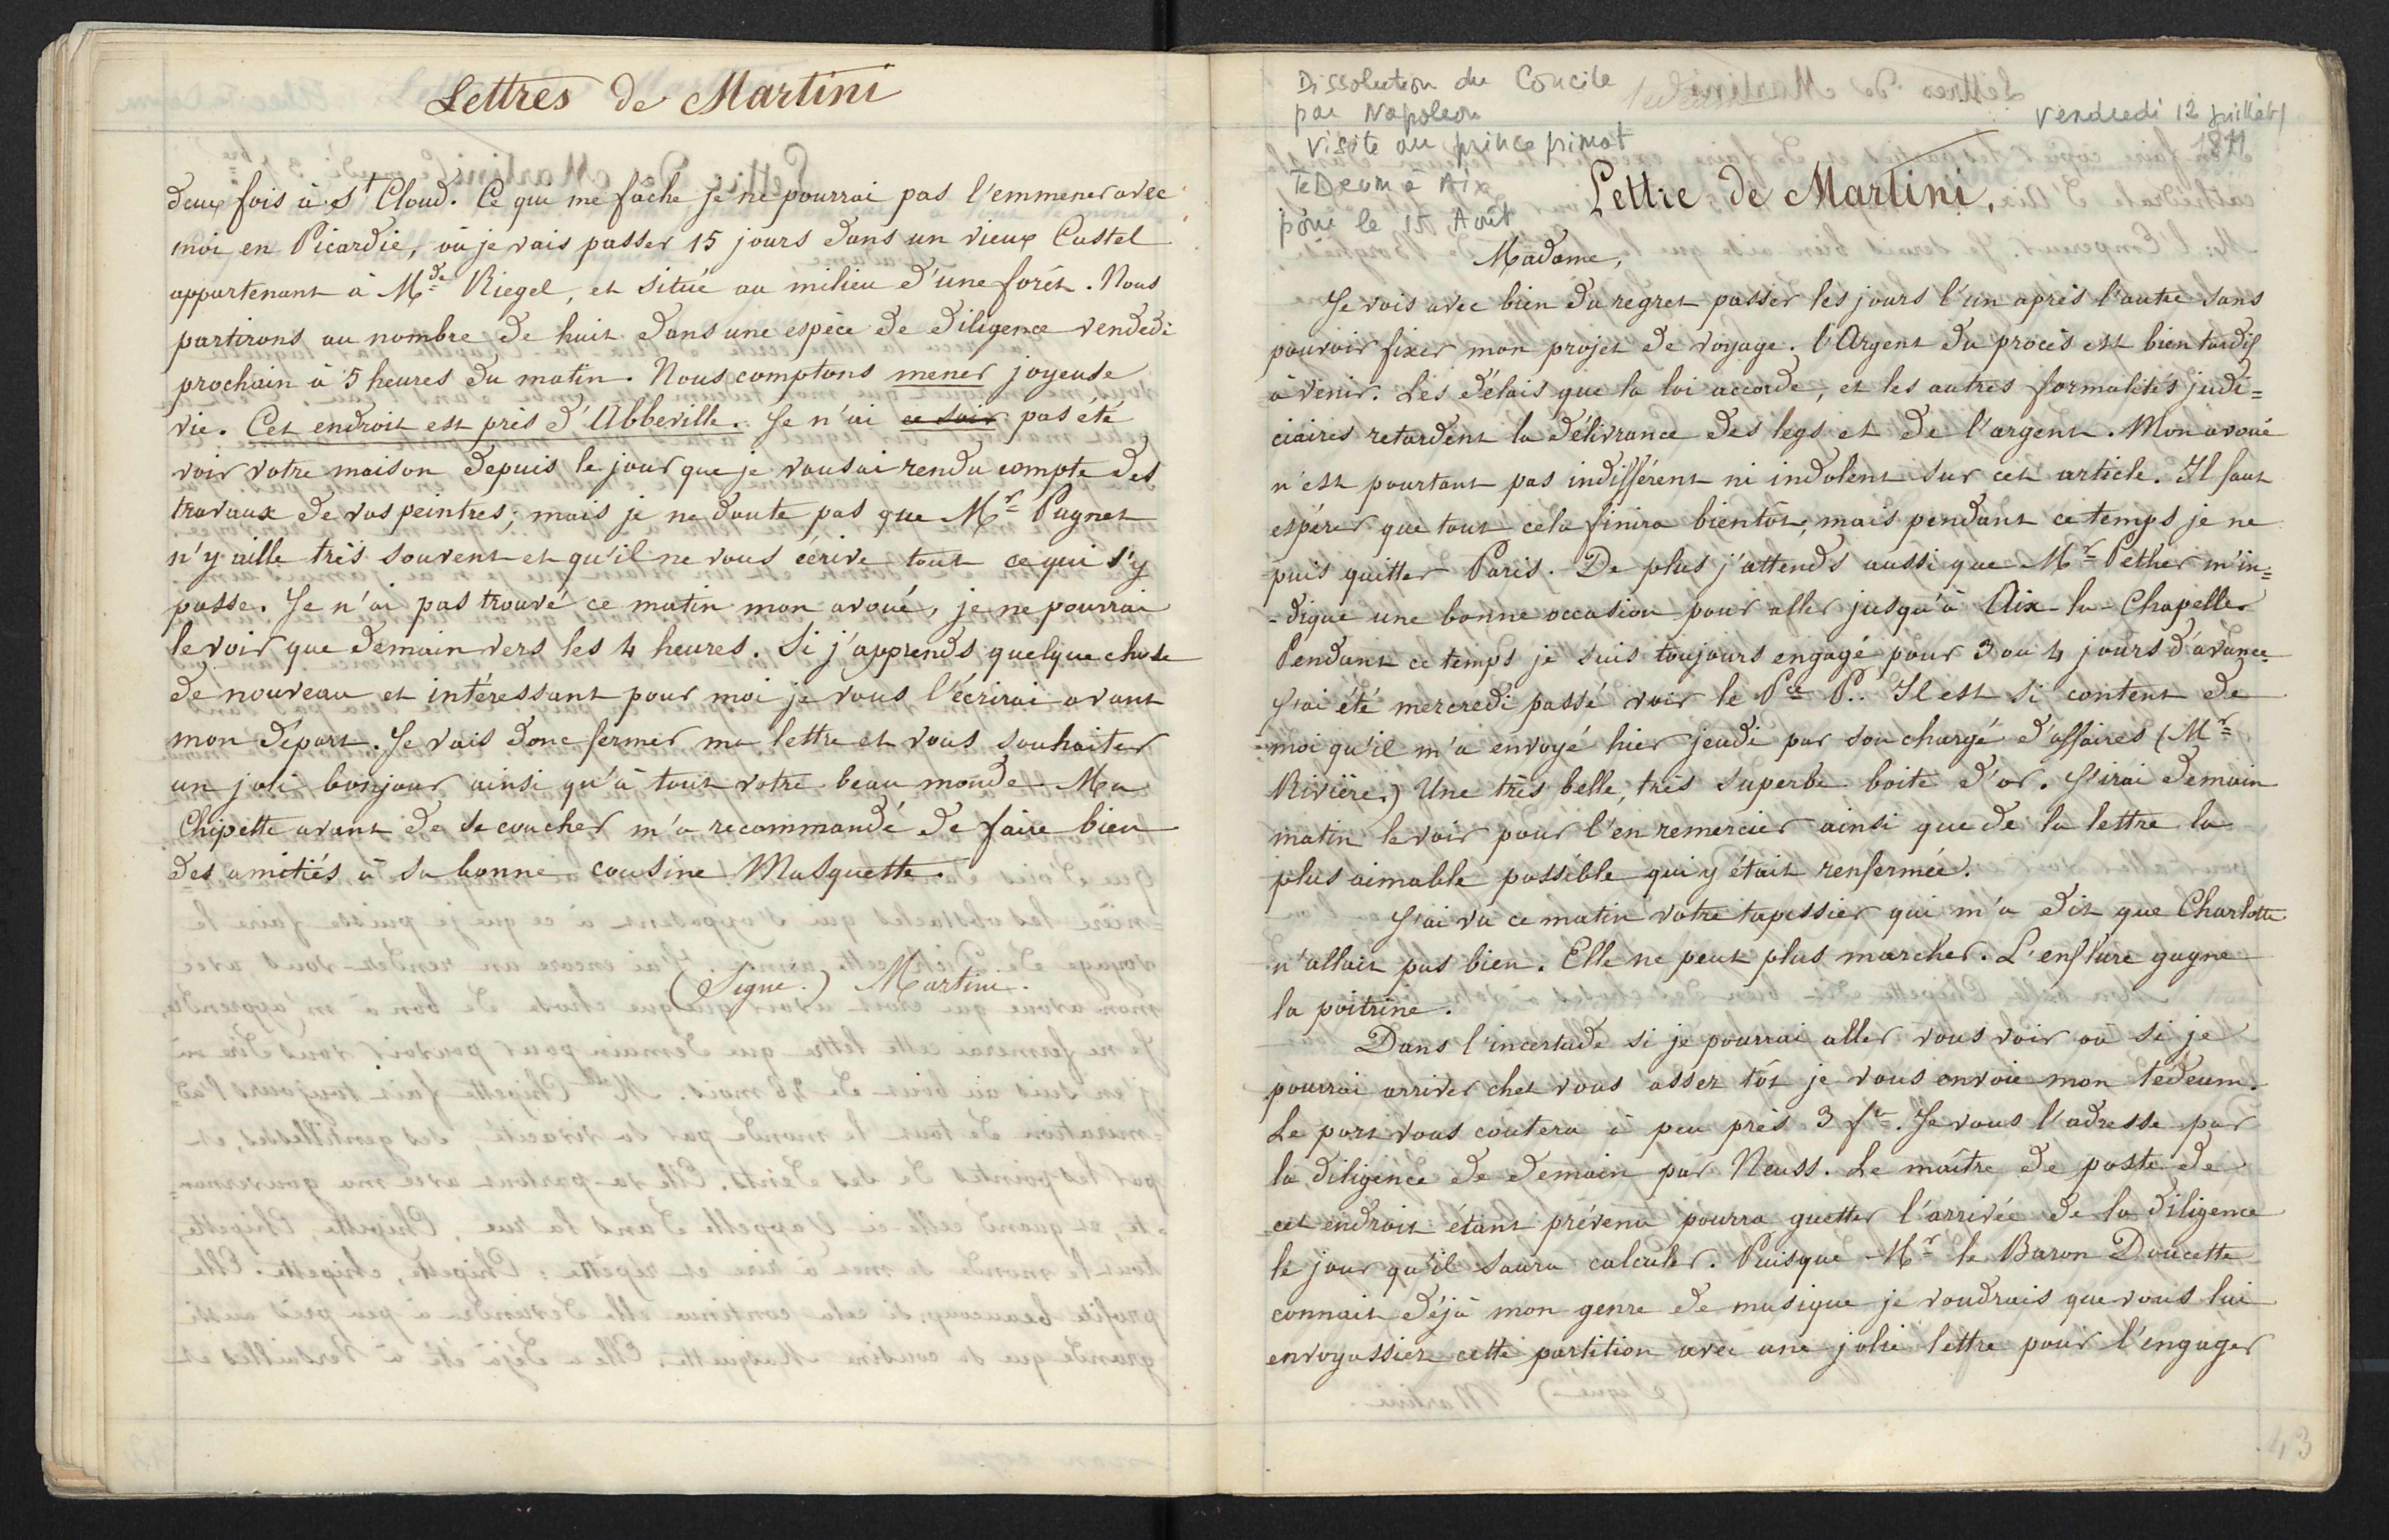 Lettres de Martini
deux fois à St Cloud. Ce qui me fâche je ne pourrai pas l'emmener avec
moi en Picardie, où je vais passer 15 jours dans un vieux Castel
appartenant à Mde Riegel, et situé au milieu d'une forêt. Nous
partirons au nombre de huit dans une espèce de diligence vendedi
prochain à 5 heures du matin. Nous comptons mener joyeuse
vie. Cet endroit est près d'Abbeville. Je n'ai ce soir pas été
voir votre maison depuis le jour que je vous ai rendu compte des
travaux de vos peintres; mais je ne doute pas que Mr Pugnet
n'y aille très souvent et qu'il ne vous écrive tout ce qui s'y
passe. Je n'ai pas trouvé ce matin mon avoué, je ne pourrai
le voir que demain vers les 4 heures. Si j'apprends quelque chose
de nouveau et intéressant pour moi je vous l'écrirai avant
mon départ. Je vais donc fermer ma lettre et vous souhaiter
un joli bonjour ainsi qu'à tout votre beau monde. Ma
Chipette avant de se coucher m'a recommandé de faire bien
des amitiés à sa bonne cousine Masquette.
(Signé.) Martini.
Dissolution du Concile
par Napoleon
visite au prince primat
TeDeum à Aix
pour le 15 Août
tedeum
vendredi 12 juillet
1811
Lettre de Martini.
Madame,
Je vois avec bien du regret passer les jours l'un après l'autre sans
pouvoir fixer mon projet de voyage. l'Argent du procès est bien tardif
à venir. Les délais que la loi accorde, et les autres formalités judi=
ciaires retardent la délivrance des legs et de l'argent. Mon avoué
n'est pourtant pas indifférent ni indolent sur cet article. Il faut
espérer que tout cela finira bientôt, mais pendant ce temps je ne
puis quitter Paris. De plus j'attends aussi que Mr Pether m'in=
=dique une bonne occasion pour aller jusqu'à Aix-la-Chapelle.
Pendant ce temps je suis toujours engagé pour 3 ou 4 jours d'avance.
J'ai été mercredi passé voir le Pce P.. Il est si content de
moi qu'il m'a envoyé hier jeudi par son chargé d'affaires (Mr
Rivière.) Une très belle, très superbe boite d'or. J'irai demain
matin le voir pour l'en remercier ainsi que de la lettre la
plus aimable possible qui y était renfermée.
J'ai vu ce matin votre tapissier qui m'a dit que Charlotte
n'allait pas bien. Elle ne peut plus marcher. L'enflure gagne
la poitrine.
Dans l'incertude si je pourrai aller vous voir ou si je
pourrai arriver chez vous assez tôt je vous envoie mon tedeum.
Le port vous coûtera à peu près 3 fr. Je vous l'adresse par
la diligence de demain par Neuss. Le maître de poste de
cet endroit étant prévenu pourra guetter l'arrivée de la diligence
le jour qu'il saura calculer. Puisque Mr le Baron Doucette
connait déjà mon genre de musique je voudrais que vous lui
envoyassiez cette partition avec une jolie lettre pour l'engager
43